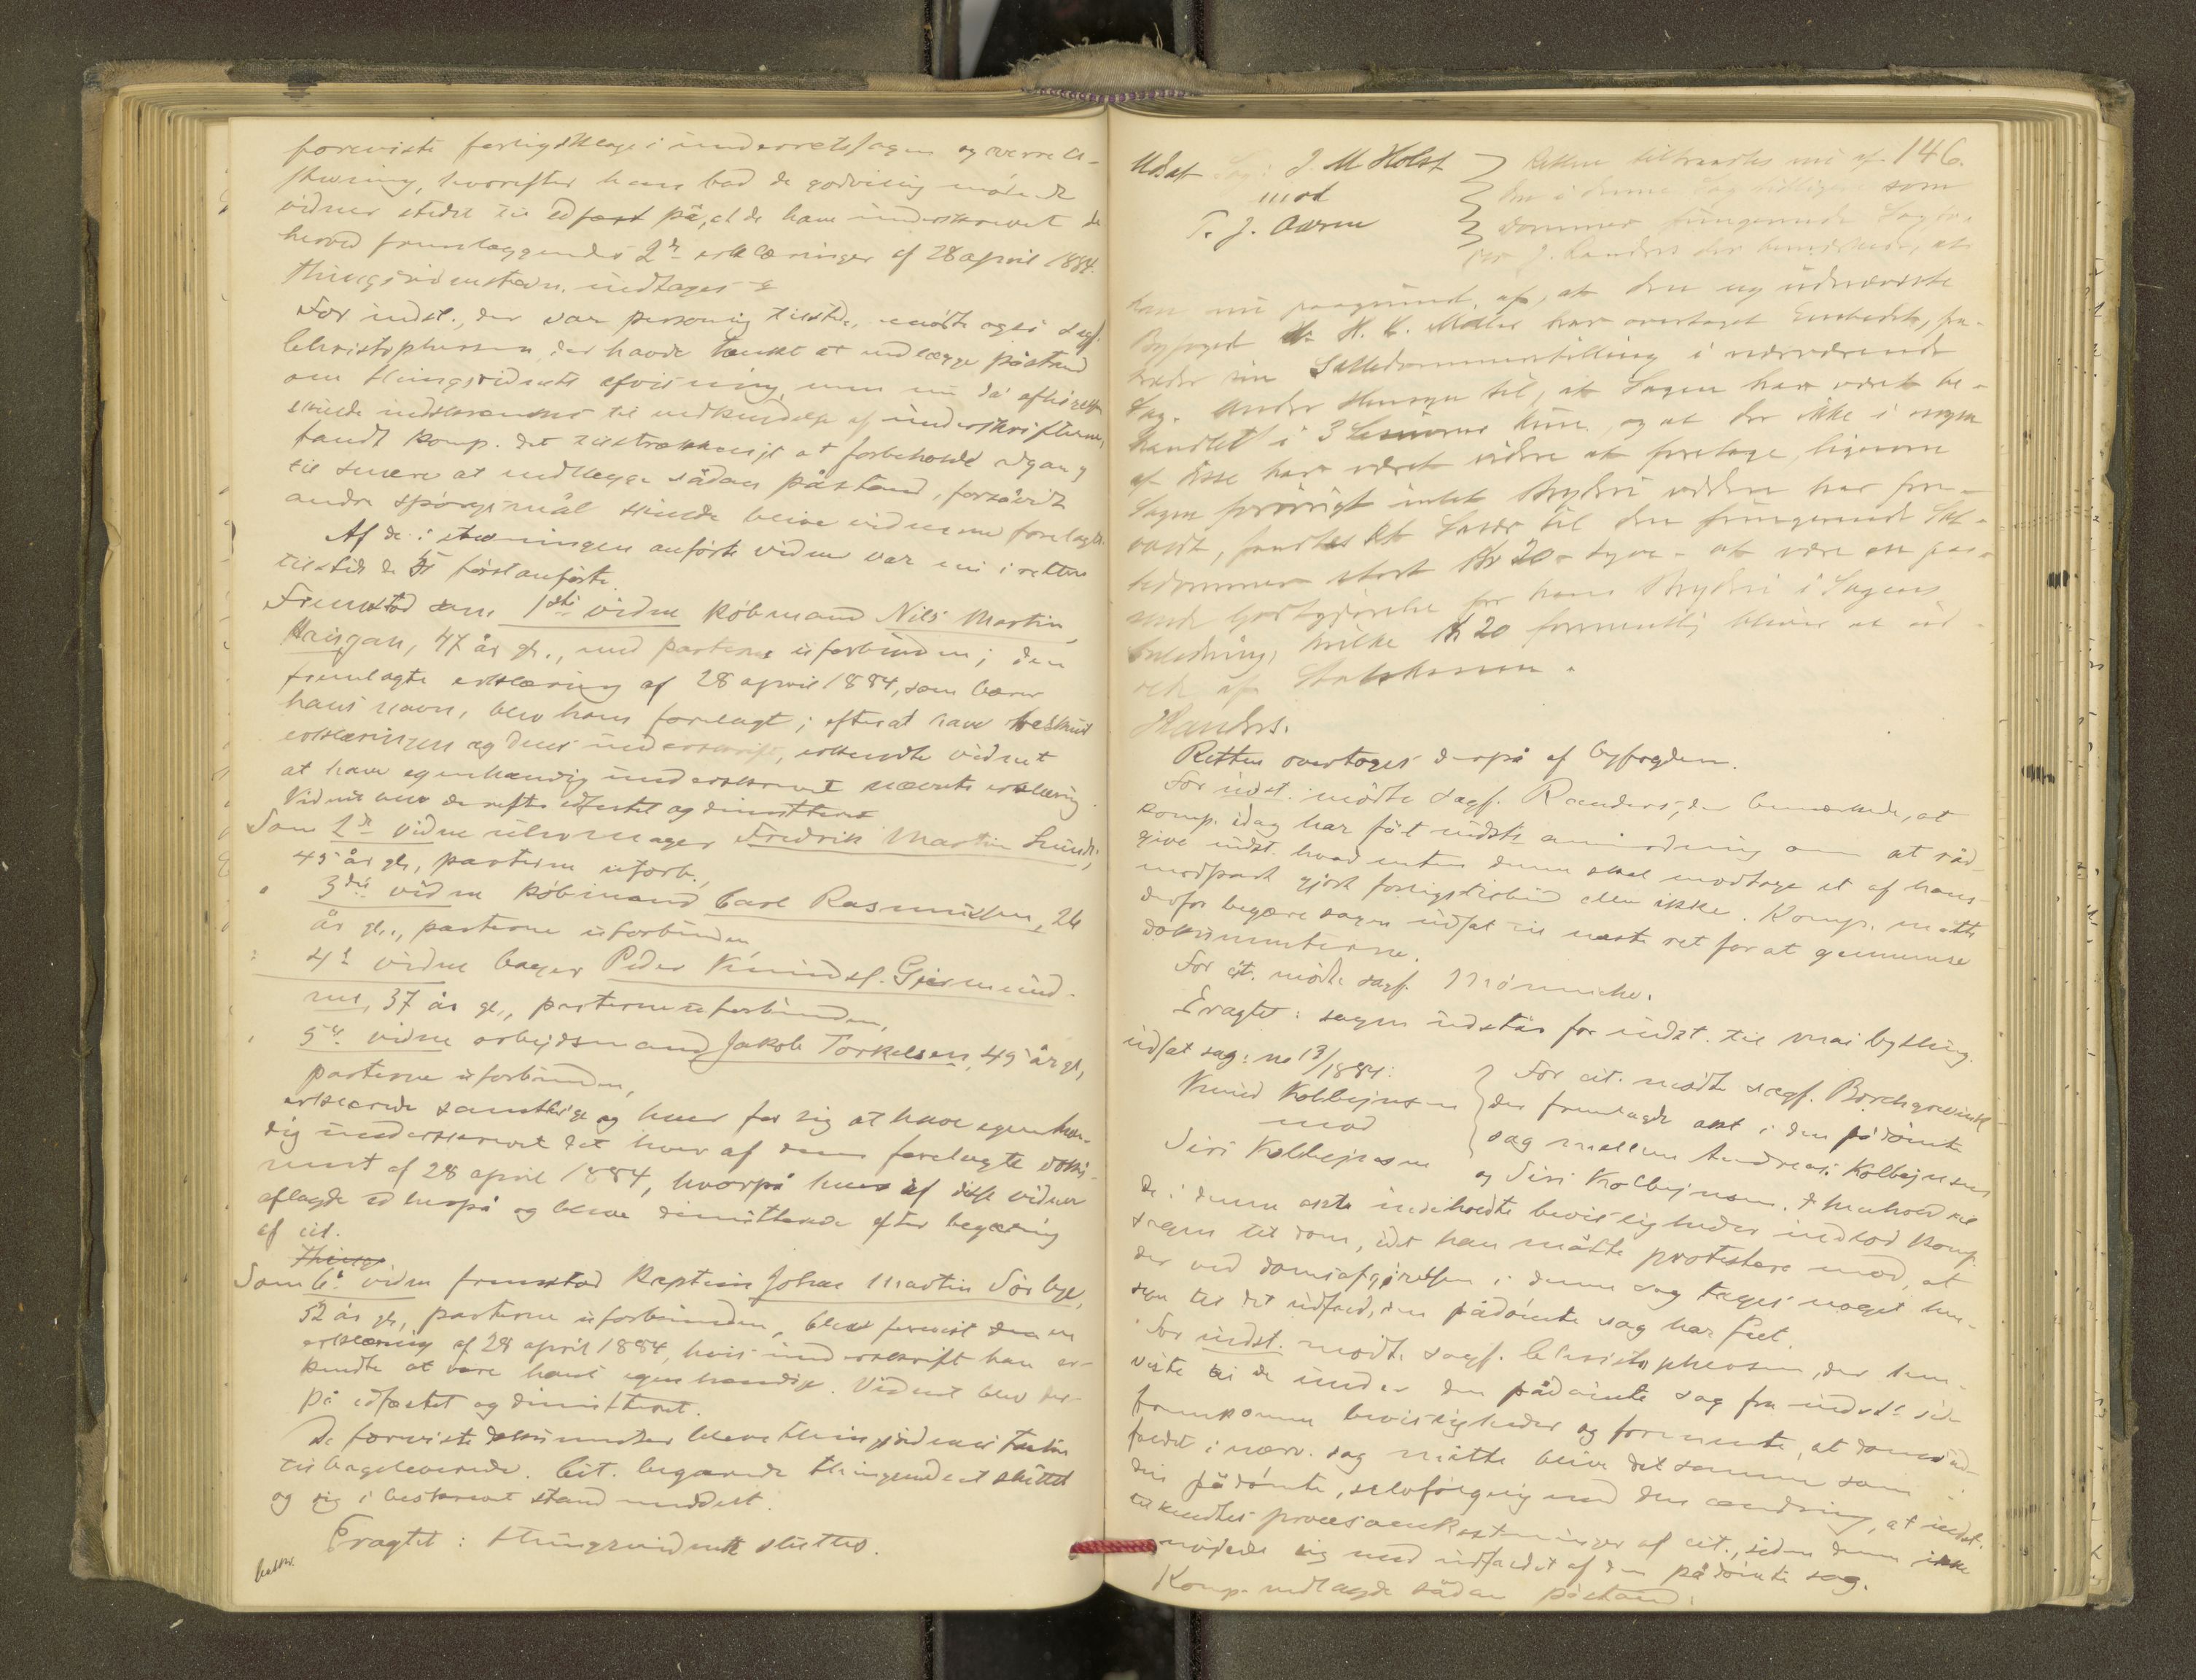 foreviste forligsklage i underretssagen og overrets-
stevning, hvorefter han bad de godvillig mødende
vidner stedet til edfæst på, at de have underskrevet de
herved fremlæggendes 2de erklæringer af 28 april 1884.
Thingsvidnestevn. indtages
For indst., der var personlig tilstede, mødte også sagf.
Christophersen, der havde tænkt at nedlægge påstand
om thingsvidnets afvisning, men nu da afhørelsen
skulde indskrænkes til vedkjendelse af underskrifterne,
fandt komp. det tilstrækkeligt at forbeholde adgang
til senere at nedlægge sådan påstand, forsåvidt
andre spørgsmål skulde blive vidnerne forelagte.
Af de i stevningen anførte vidner var nu i retten
tilstede de 5 først anførte.
Fremstod som 1ste vidne kjøbmand Nils Martin
47 år gl., med parterne uforbunden; den
fremlagte erklæring af 28 april 1884, som bærer
hans navn, blev ham forelagt; efterat have beskuet
erklæringen og dens underskrift, erkjendte vidnet
at have egenhændig underskrevet nævnte erklæring.
Vidnet blev derefter edfæstet og dimitteret
Som 2det vidne uhrmager Fredrik Martin Lund,
45 år gl., parterne uforb.,
3die vidne kjøbmand Carl Rasmussen, 26
år gl., parterne uforbunden
4de vidne bager Peder Knudsf. Gjermund-
nes, 37 år gl., parterne uforbunden,
5te vidne arbejdsmand Jakob Torkelsen, 49 år gl,
parterne uforbunden,
erklærede samtlige og hver for sig at have egenhæn-
dig underskrevet det hver af dem forelagte doku-
ment af 28 april 1884, hvorpå hver af disse vidner
aflagde ed herpå og bleve dimitterede efter begæring
af cit.
Things
Som 6te vidne fremstod kaptein Johan Martin Sørbye,
52 år gl., parterne uforbunden, blev forevist den en
erklæring af 28 april 1884, hvis underskrift han er-
kjendte at være hans egenhændige. Vidnet blev der-
på edfæstet og dimitteret.
De foreviste dokumenter bleve
tilbageleverede. Cit. begærede thingsvidnet sluttet
og sig i beskrevet stand meddelt.
Eragtet: thingsvidnet sluttes.
beskr.
146.
Udsat Sag: J. M Holst
mod
T. J. Aarre
Retten tiltraadtes nu af
den i denne Sag tidligere som
Dommer fungerende Sagfø-
rer J. Randers der bemærkede, at
han nu paagrund af, at den ny udnævnte
Byfoged H. K. Møller har overtaget Embedet, fra-
træder sin Settedommerstilling i nærværende
Sag. Under Hensyn til, at Sagen har været be-
handlet i 3 Sessioner kun, og at der ikke i nogen
af disse har været videre at foretage, ligesom
Sagen forøvrigt intet Bryderi videre har for-
voldt, fandtes et Salær til den fungerende Set-
tedommer stort Kr 20 – tyve – at være en pas-
sende Godtgjørelse for hans Bryderi i Sagens
Anledning, hvilke Kr 20 formentlig bliver at ud-
rede af Statskassen.
Randers.
Retten overtoges derpå af byfogden.
For indst. mødte sagf. Randers, der bemærkede, at
komp. idag har fåt indst's anmodning om at råd-
give indst. hvad enten denne skal modtage et af hans
modpart gjort forligstilbud eller ikke. Komp. måtte
derfor begære sagen udsat til næste ret for at gennemse
dokumenterne.
For cit. mødte sagf. Mønniche.
Eragtet: sagen udstår for indst. til mai bything.
udsat sag: no 13/1884:
Knud Kolbejnsen
mod
Siri Kolbejnsen
For cit. mødte sagf. Borchgrevink
der fremlagde akt i den pådømte
sag mellem Andreas Kolbejnsen
og Siri Kolbejnsen. I henhold til
de i denne akt indeholdte bevisligheder indlod komp
sagen til dom, idet han måtte protestere mod, at
der ved domsafgjørelsen i denne sag tages noget hen-
syn til det udfald, den pådømte sag har fået.
For indst. mødte sagf. Christophersen, der hen-
viste til de under den pådømte sag fra indsts side
fremkomne bevisligheder og formente, at domsud-
faldet i nærv. sag måtte blive det samme som i
den pådømte, selvfølgelig med den ændring, at indst.
tilkendtes procesomkostninger af cit., siden denne ikke
nøjede sig med udfaldet af den pådømte sag.
Komp. nedlagde sådan påstand.